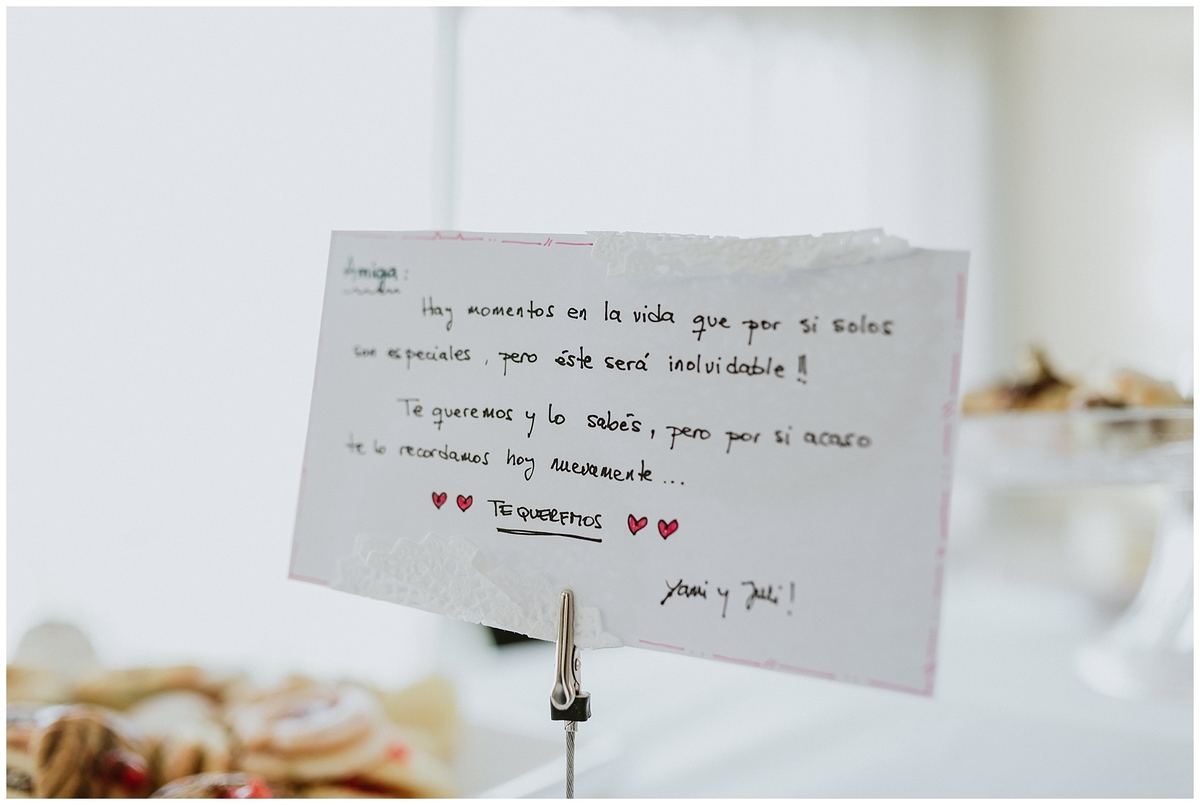 Amiga:
Hay momentos en la vida que por si solos
son especiales, pero éste será inolvidable!!
Te queremos y lo sabés, pero por si acaso
te lo recordamos hoy nuevamente...
TE QUEREMOS
Yani y Juli!